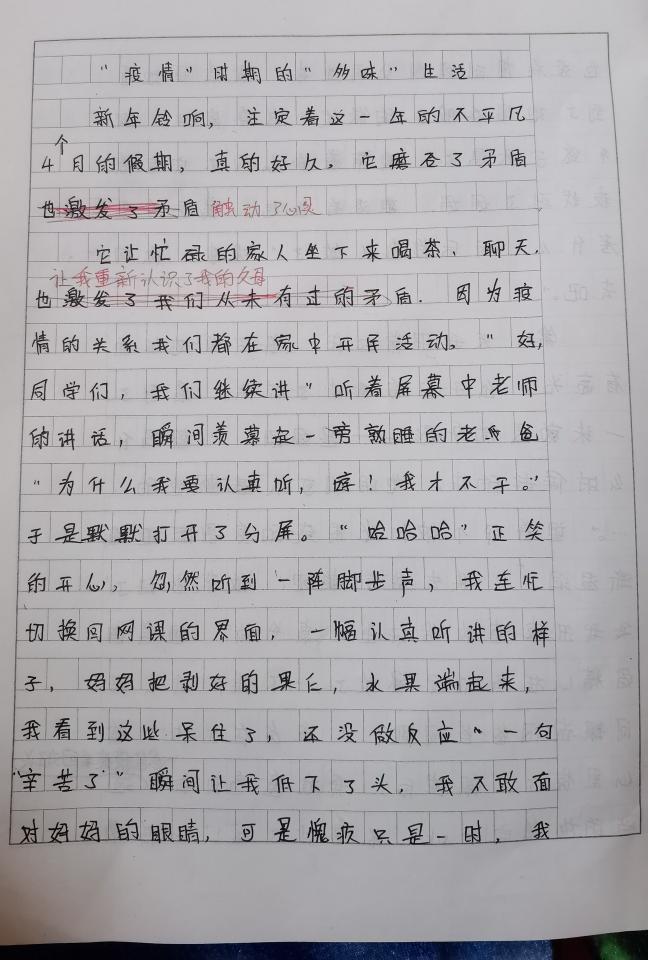 “疫情”时期的“多味”生活
新年铃响，注定着这一年的不平凡
4个月的假期，真的好久，它磨吞了矛盾
也激发了矛盾触动了心灵
它让忙碌的家人坐下来喝茶，聊天，
让我重新认识了我的父母
也激发了我们从未有过的矛盾．因为疫
情的关系我们都在家中开展活动。“好，
同学们，我们继续讲”听着屏幕中老师
的讲话，瞬间羡慕起一旁熟睡的老爸
“为什么我要认真听，哼！我才不平。”
于是默默打开了分屏。“哈哈哈”正笑
的开心，忽然听到一阵脚步声，我连忙
切换回网课的界面，一幅认真听讲的样
子，妈妈把剥好的果仁，水果端起来，
我看到这些呆住了，还没做反应，一句
“辛苦了”瞬间让我低下了头，我不敢面
对妈妈的眼睛，可是愧疚只是一时，我